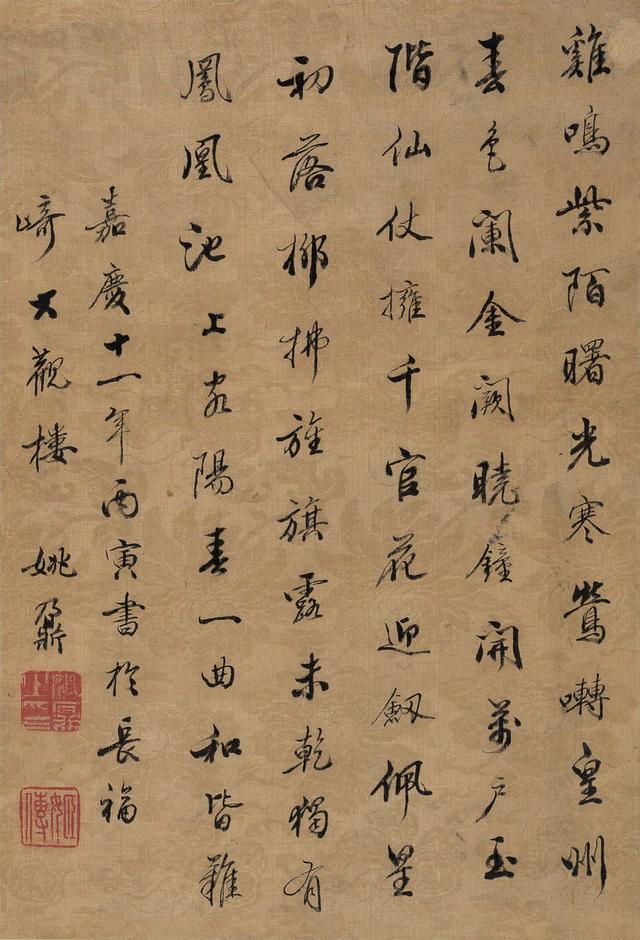 雞鳴紫陌曙光寒鶯囀皇州
春色闌金闕曉鐘開萬戶玉
階仙仗擁千官花迎劒佩星
初落柳拂旌旗露未乾獨有
鳳凰池上客陽春一曲和皆難
嘉慶十一年丙寅書於長福
崎大觀楼 姚鼐
姚鼐之印
姬傳